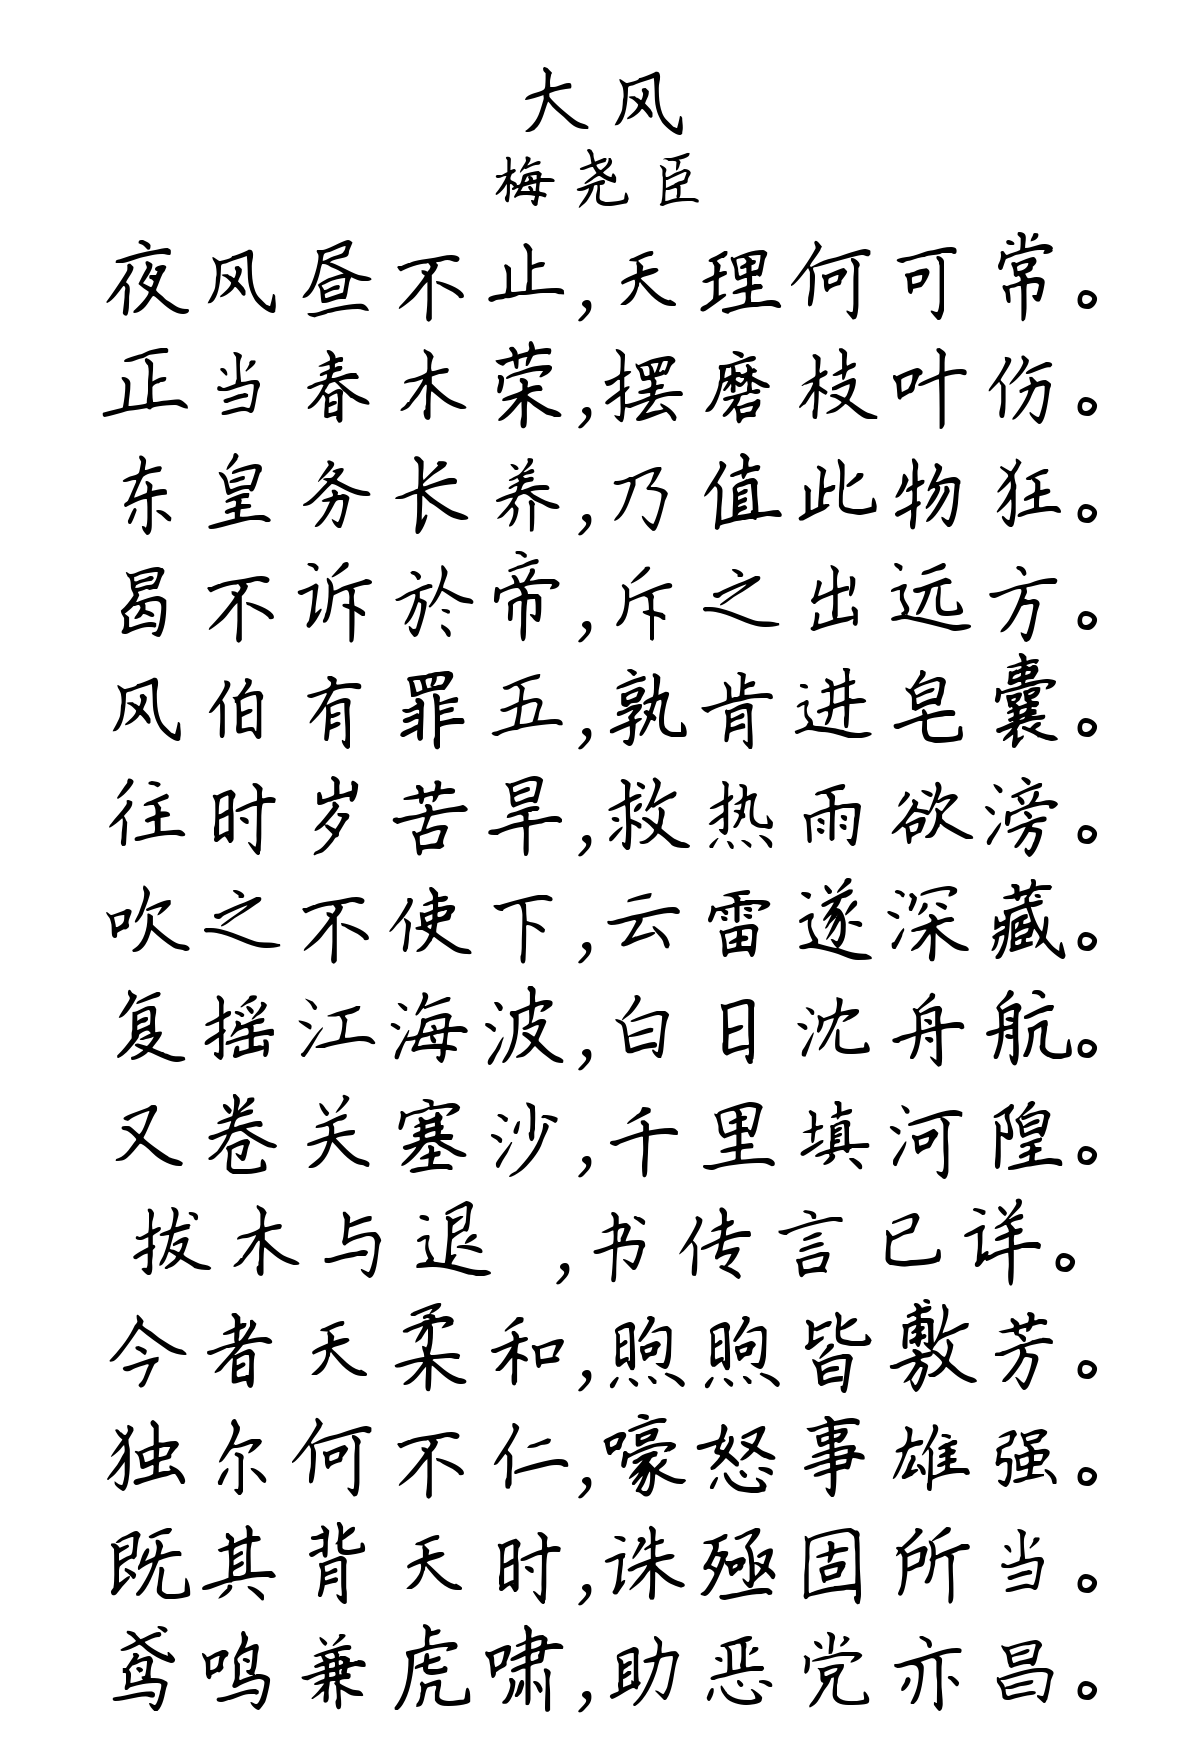 大风
梅尧臣
夜风昼不止,天理何可常。
正当春木荣,摆磨枝叶伤。
东皇务长养,乃值此物狂。
曷不诉於帝,斥之出远方。
风伯有罪五,孰肯进皂囊。
往时岁苦旱,救热雨欲滂。
吹之不使下,云雷遂深藏。
复摇江海波,白日沈舟航。
又卷关塞沙,千里填河隍。
拔木与退 ,书传言已详。
今者天柔和,煦煦皆敷芳。
独尔何不仁,嚎怒事雄强。
既其背天时,诛殛固所当。
鸢鸣兼虎啸,助恶党亦昌。